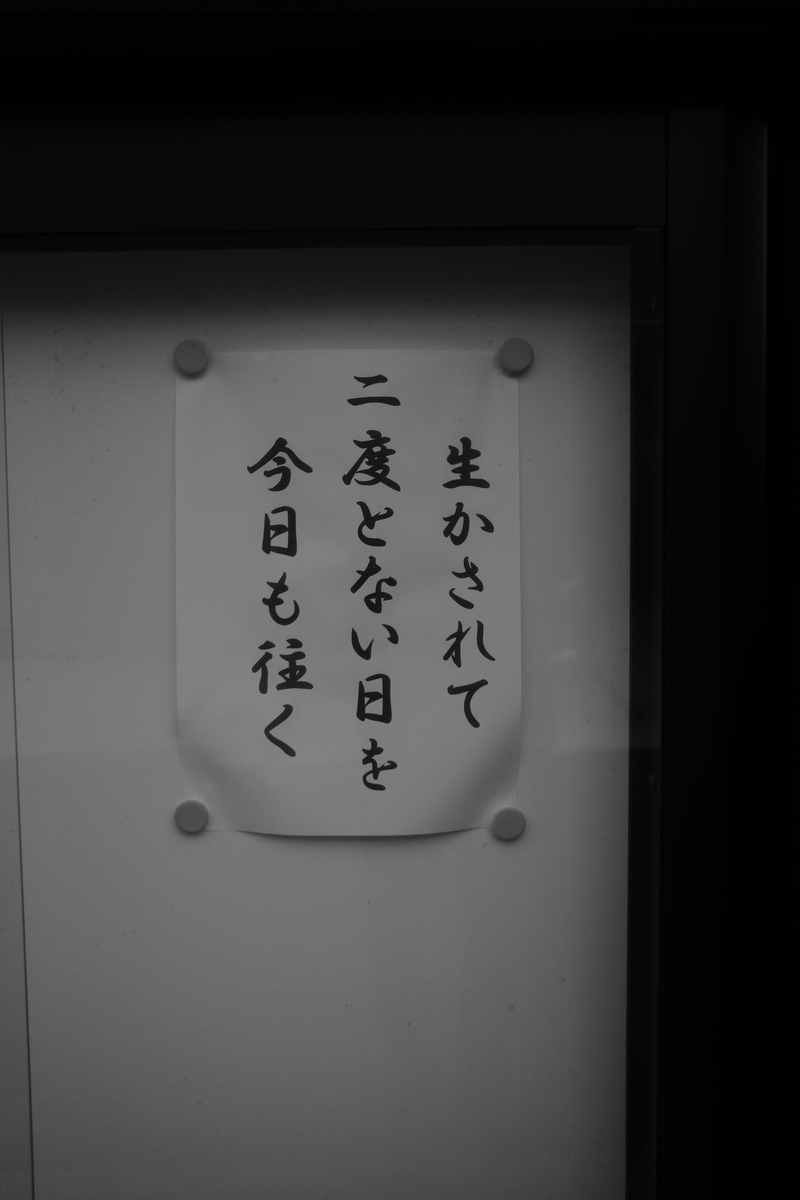 生かされて
二度とない日を
今日も往く